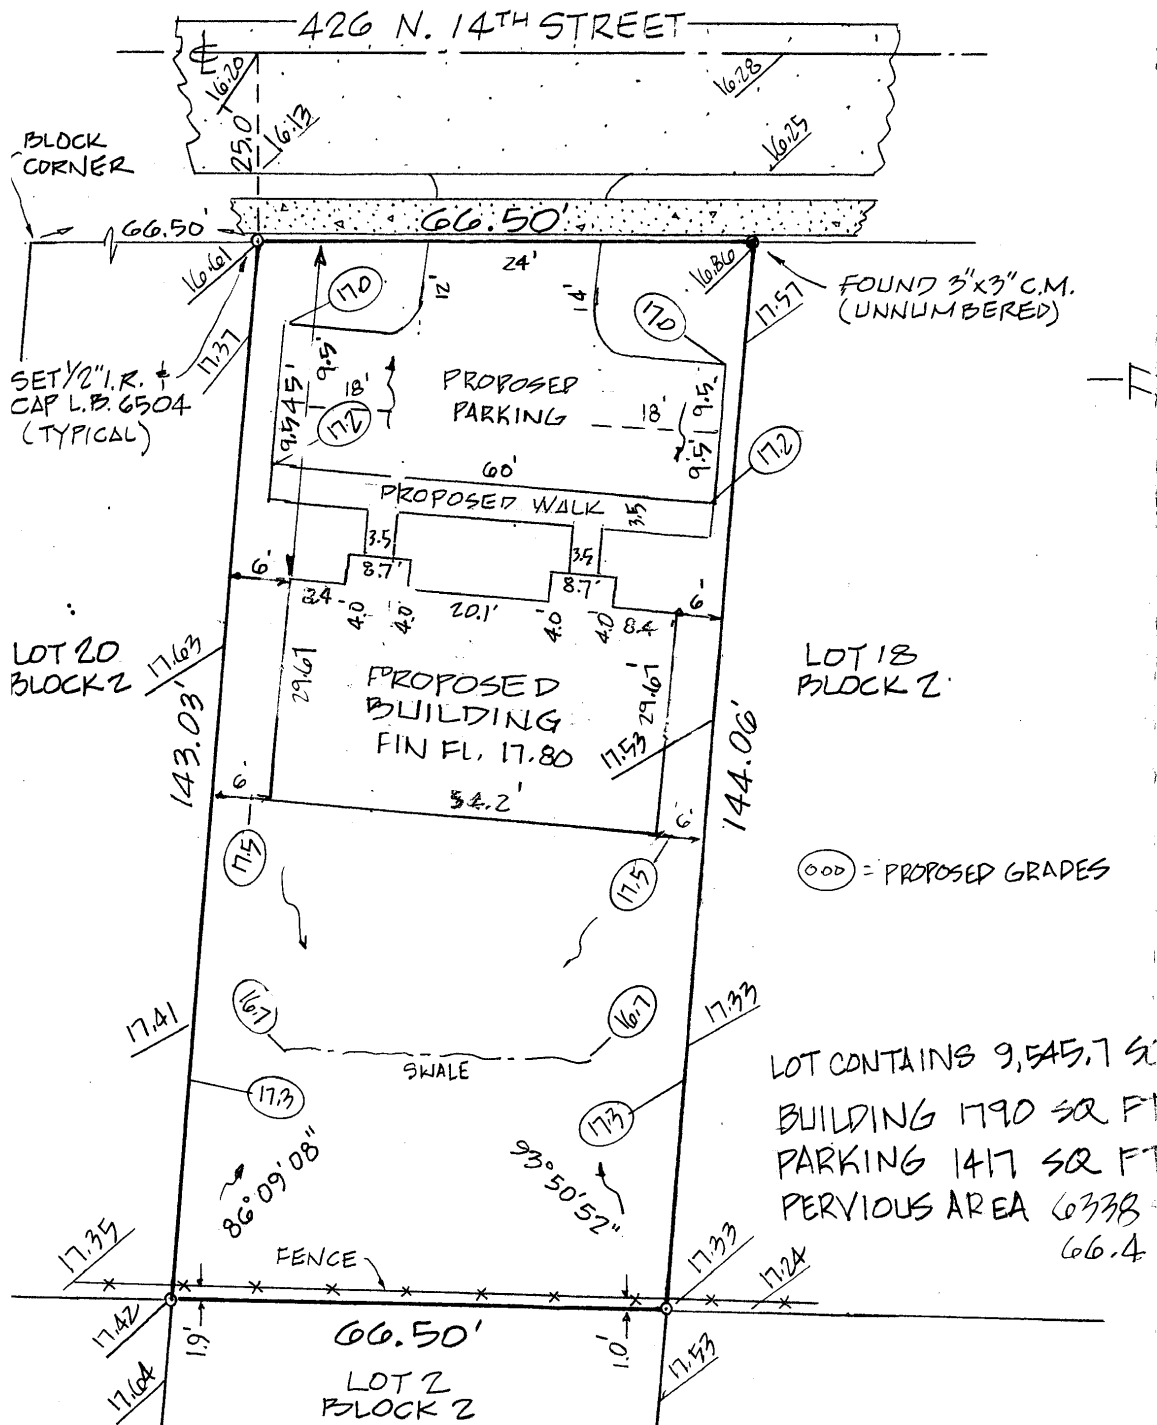 426 N. 14TH STREET
℄
16.20
16.28
25.0'
16.13
16.25
BLOCK
CORNER
66.50'
66.50'
24'
16.61
16.86
12'
14'
17.0
17.0
17.57
FOUND 3"x3" C.M.
(UNNUMBERED)
SET 1/2" I.R. &
CAP L.B. 6504
(TYPICAL)
17.37
9.5'
45'
9.5
18'
17.2
PROPOSED
PARKING
18'
9.5
9.5'
17.2
60'
PROPOSED WALK
3.5
3.5
3.5
6'
8.7'
8.7'
6'
8.4
4.0
4.0
20.1'
4.0
4.0
8.4
LOT 20
BLOCK 2
17.63
143.03'
29.67
PROPOSED
BUILDING
FIN FL. 17.80
29.67'
17.53
144.06'
LOT 18
BLOCK 2
6'
54.2'
6'
17.5
17.5
000 = PROPOSED GRADES
16.7
16.7
17.41
17.33
SWALE
17.3
17.3
LOT CONTAINS 9,545.7
BUILDING 1790 SQ FT
PARKING 1417 SQ FT
PERVIOUS AREA 6338
66.4
86° 09' 08"
93° 50' 52"
17.35
FENCE
17.33
17.24
17.42
1.9'
66.50'
1.0'
17.64
17.53
LOT 2
BLOCK 2